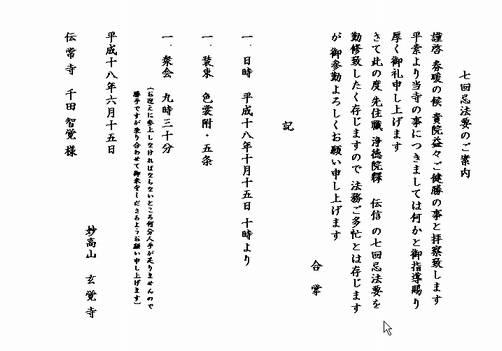 七回忌法要のご案内
謹啓 春暖の候 貴院益々ご健勝の事と拝察致します
平素より当寺の事につきましては何かと御指導賜り
厚く御礼申し上げます
さて此の度 先住職 浄徳院釋 伝信 の七回忌法要を
勤修致したく存じますので 法務ご多忙とは存じます
が 御参勤よろしくお願い申し上げます
合 掌
記
一．日時 平成十八年十月十五日 十時より
一．装束 色裳附・五条
一．衆会 九時三十分
（お迎えに参上しなければならないところ何分人手が足りませんので
勝手ですが乗り合わせて御来をしださるようお願い申し上げます）
平成十八年六月十五日
妙高山 玄覚寺
伝常寺 千田智覚 様